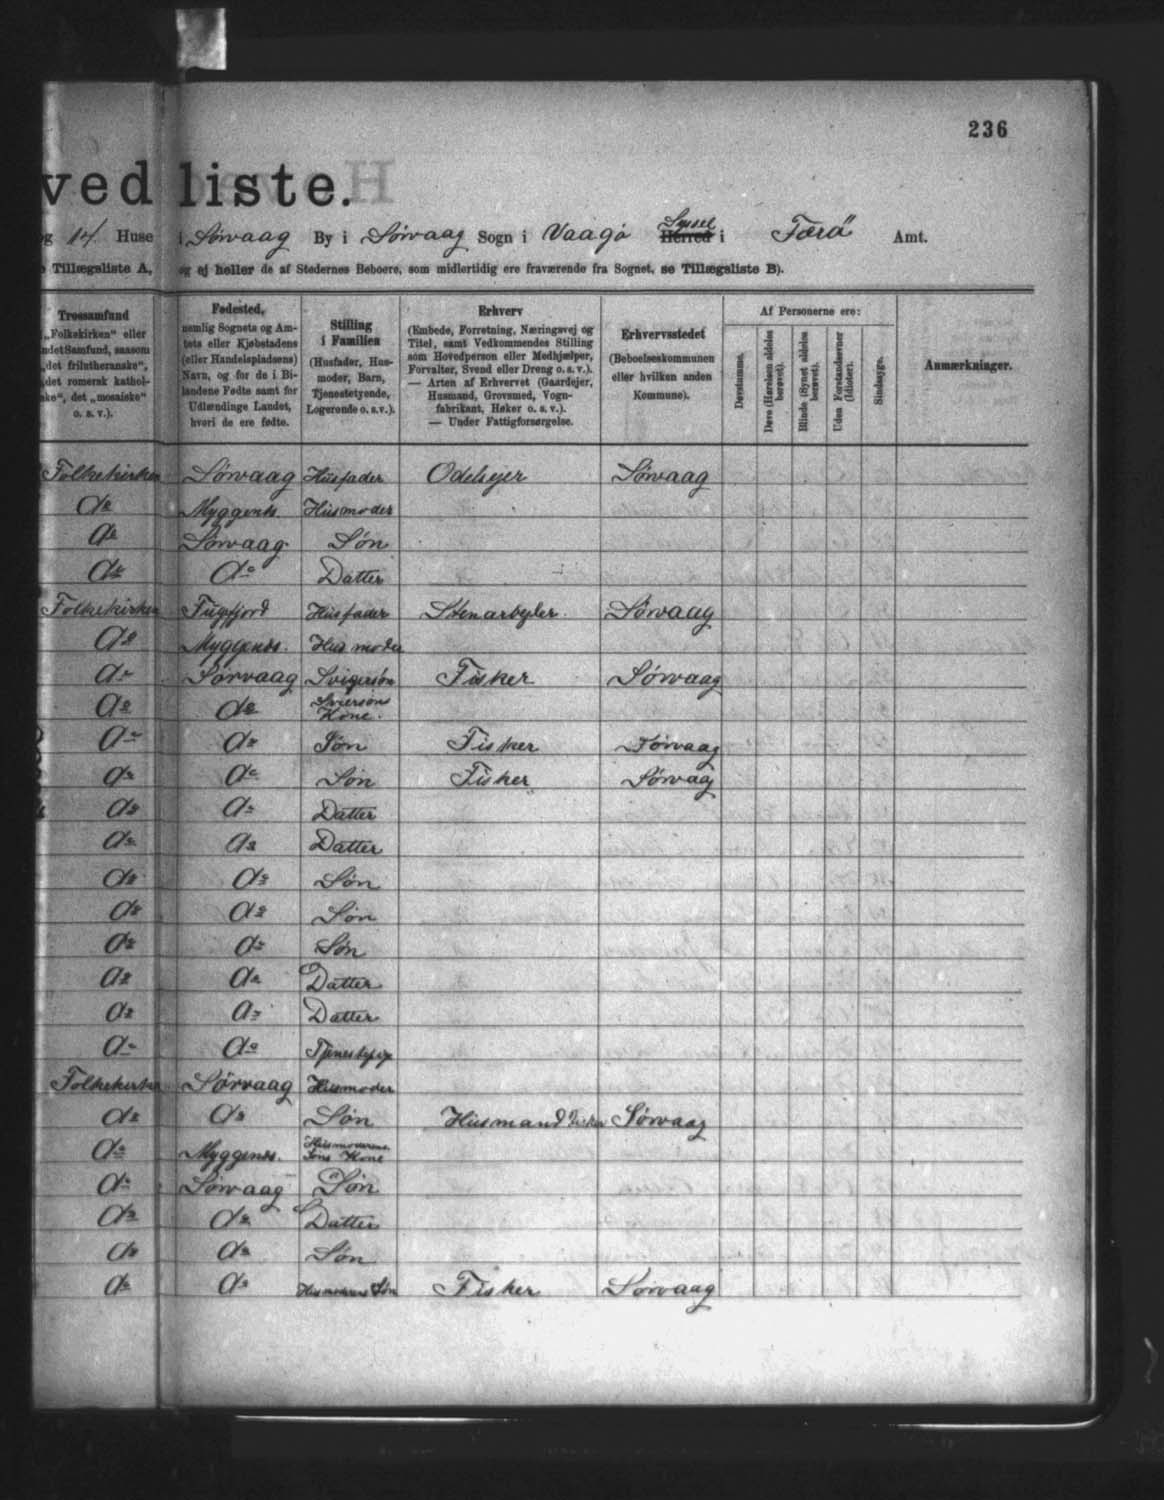 236
vedliste.
og 14. Huse i Sørvaag By i Sørvaag Sogn i Vaagø Syssel Herred i Færø Amt.
Tillægsliste A, og ej heller de af Stedernes Beboere, som midlertidig ere fraværende fra Sognet, se Tillægsliste B).
Trossamfund
(„Folkekirken“ eller
andet Samfund, saasom
„det frilutheranske“,
„det romersk kathol-
ske“, det „mosaiske“
o. s. v.).
Fødested,
nemlig Sognets og Am-
tets eller Kjøbstadens
(eller Handelspladsens)
Navn, og for de i Bi-
landene Fødte samt for
Udlændinge Landet,
hvori de ere fødte.
Stilling
i Familien
(Husfader, Hus-
moder, Barn,
Tjenestetyende,
Logerende o. s. v.).
Erhverv
(Embede, Forretning, Næringsvej og
Titel, samt Vedkommendes Stilling
som Hovedperson eller Medhjælper,
Forvalter, Svend eller Dreng o. s. v.).
— Arten af Erhvervet (Gaardejer,
Husmand, Grovsmed, Vogn-
fabrikant, Høker o. s. v.).
— Under Fattigforsørgelse.
Erhvervsstedet
(Beboelseskommunen
eller hvilken anden
Kommune).
Af Personerne ere:
Døvstumme.
Døve (Hørelsen aldeles berøvet).
Blinde (Synet aldeles berøvet).
Uden Forstandsevner (Idioter).
Sindssyge.
Anmærkninger.
Folkekirken Sørvaag Husfader Odelsejer Sørvaag
do Myggenæs Husmoder
do Sørvaag Søn
do do Datter
Folkekirken Fuglefjord Husfader Stenarbejder Sørvaag
do Myggenæs. Husmoder
do Sørvaag Svigersøn Fisker Sørvaag
do do Sviersøns Kone.
do do Søn Fisker Sørvaag
do do Søn Fisker Sørvaag
do do Datter
do do Datter
do do Søn
do do Søn
do do Søn
do do Datter
do do Datter
do do Tjenestepige
Folkekirken Sørvaag Husmoder
do do Søn Husmand Fisker Sørvaag
do Myggenæs. Husmoderens Søns Kone
do Sørvaag Søn
do do Datter
do do Søn
do do Husmoderens Søn Fisker Sørvaag